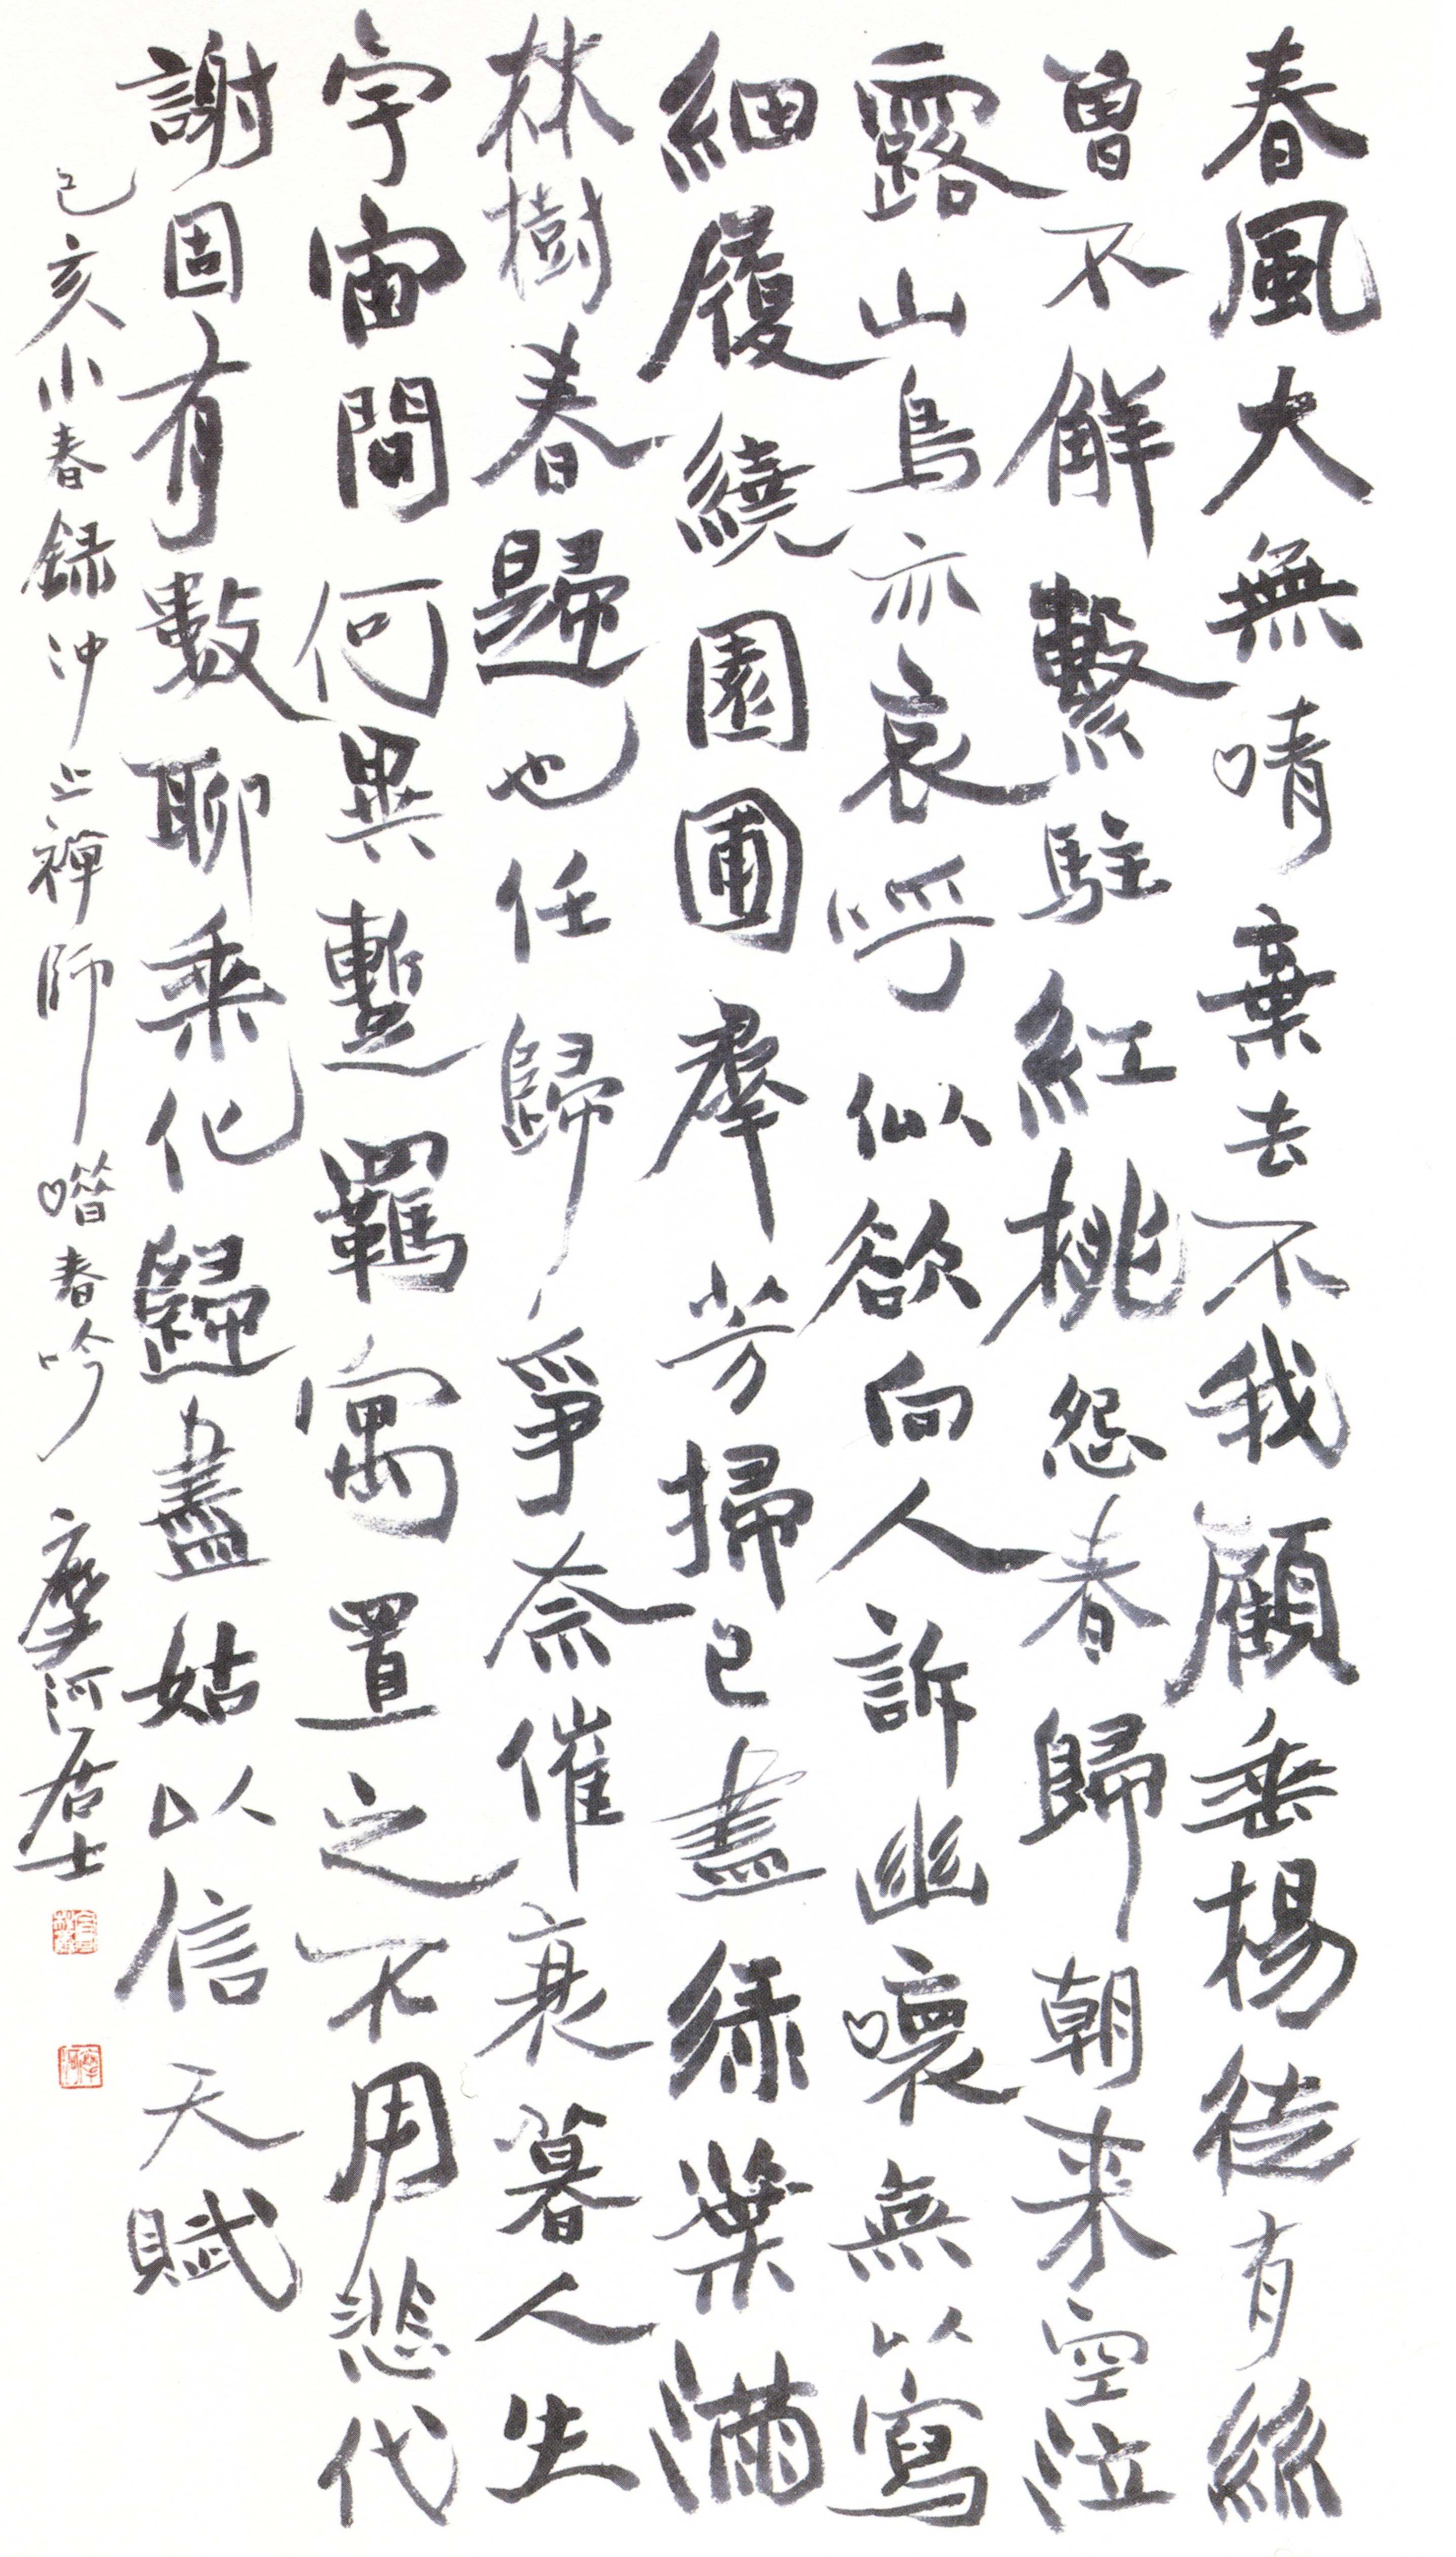 春風大無情棄去不我顧垂楊徒有絲
曾不解繫駐紅桃怨春歸朝来空泣
露山鳥亦哀呼似欲向人訴幽懷無以寫
細履繞園圃羣芳掃已盡緑葉滿
林樹春歸也任歸爭奈催衰暮人生
宇宙間何異暫羈寓置之不用悲代
謝固有數聊乘化歸盡姑以信天賦
己亥小春録沖止禪師惜春吟 摩河居士
摩河